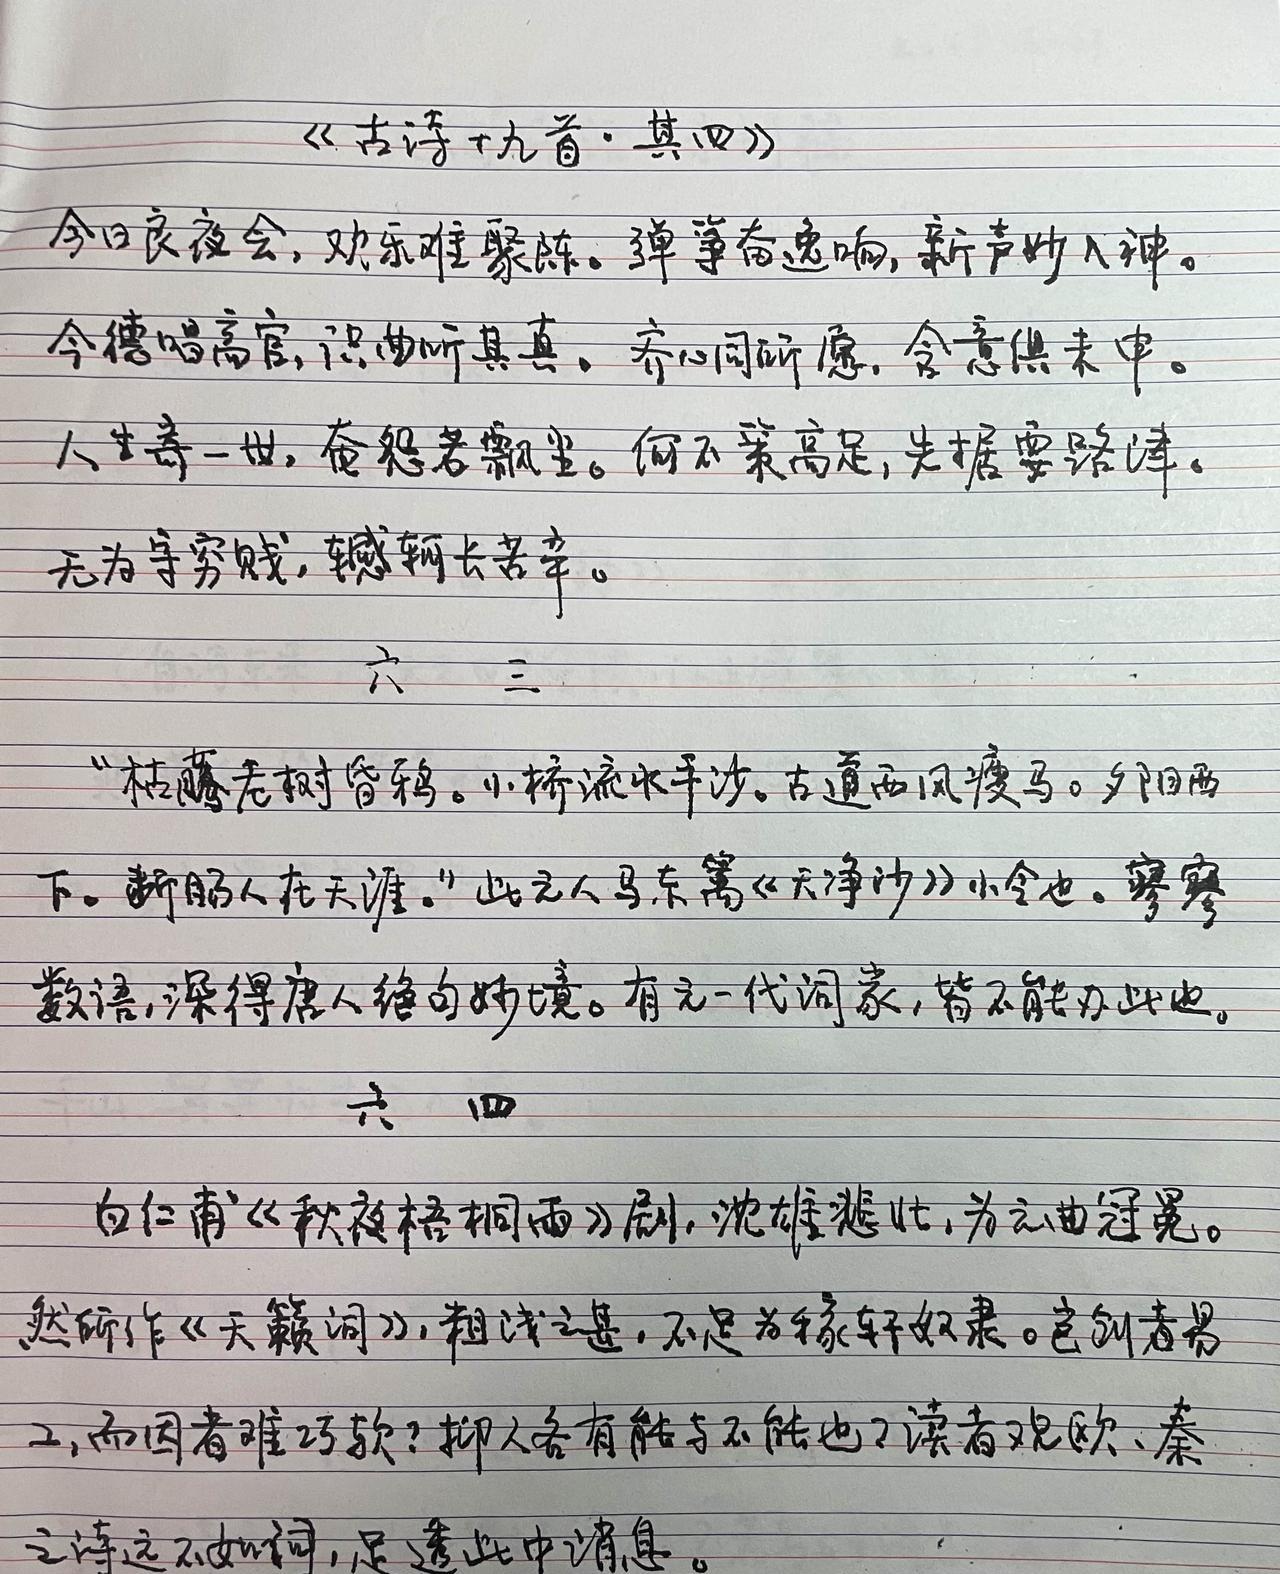 《古诗十九首·其四》
今日良夜会，欢乐难聚陈。弹筝奋逸响，新声妙入神。
今德唱高官，识曲听其真。齐心同所愿，含意俱未申。
人生寄一世，奄忽若飘尘。何不策高足，先据要路津。
无为守穷贱，轗轲长苦辛。
六 三
“枯藤老树昏鸦。小桥流水平沙。古道西风瘦马。夕阳西
下。断肠人在天涯。”此元人马东篱《天净沙》小令也。寥寥
数语，深得唐人绝句妙境。有元一代词家，皆不能办此也。
六 四
白仁甫《秋夜梧桐雨》剧，沈雄悲壮，为元曲冠冕。
然所作《天籁词》，粗浅之甚，不足为稼轩奴隶。岂创者易
工，而因者难巧欤？抑人各有能与不能也？读者观欧、秦
之诗远不如词，足透此中消息。